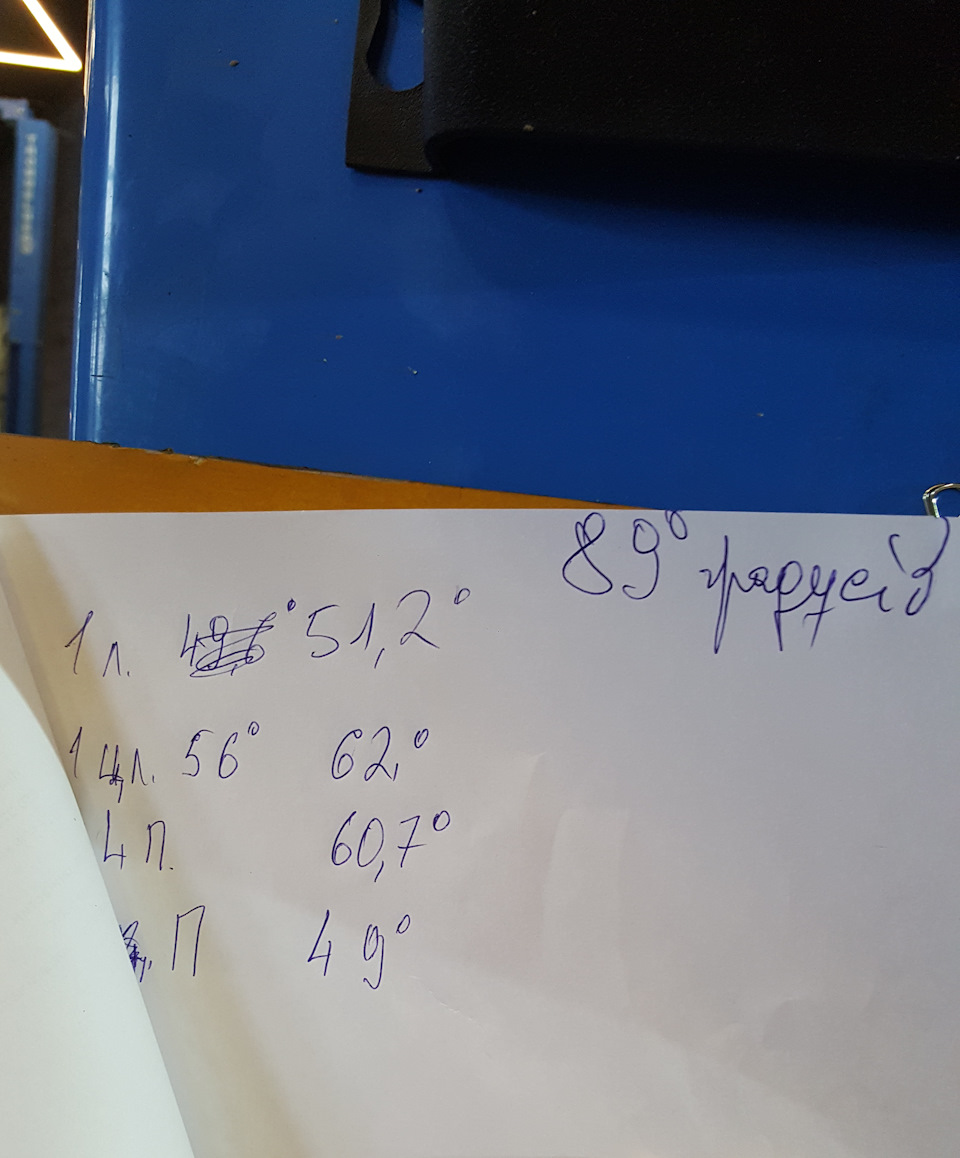 89° градусів
1 л. 51,2°
1 цл. 56° 62°
ц П. 60,7°
П 49°